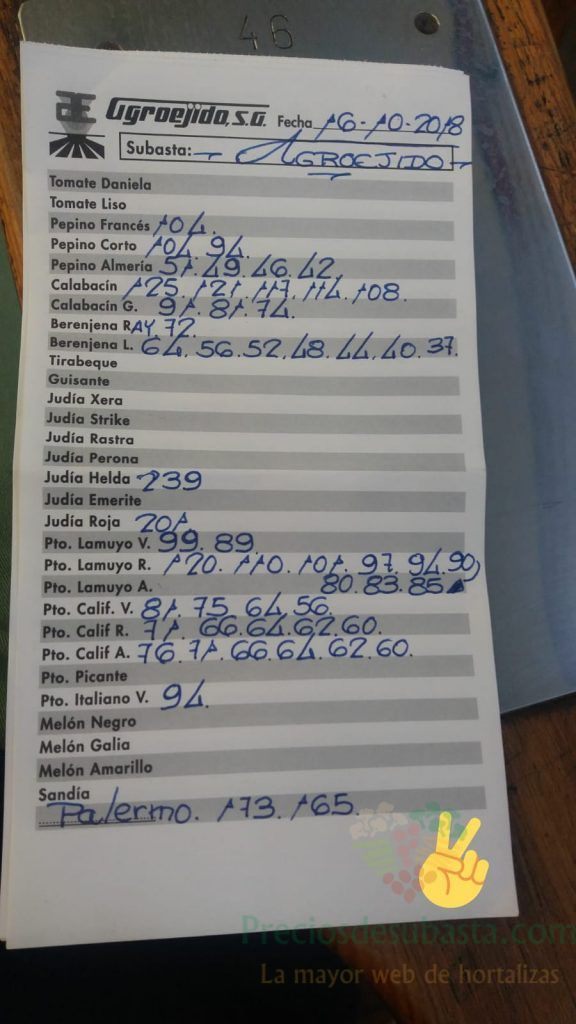 46
Agroejido, S.A. Fecha 16-10-2018
Subasta: AGROEJIDO
Tomate Daniela
Tomate Liso
Pepino Francés 104.
Pepino Corto 104. 94.
Pepino Almería 51. 49. 46. 42.
Calabacín 125. 121. 117. 114. 108.
Calabacín G. 91. 81. 74.
Berenjena RAY. 72.
Berenjena L. 64. 56. 52. 48. 44. 40. 37.
Tirabeque
Guisante
Judía Xera
Judía Strike
Judía Rastra
Judía Perona
Judía Helda 239
Judía Emerite
Judía Roja 201.
Pto. Lamuyo V. 99. 89.
Pto. Lamuyo R. 120. 110. 101. 97. 94. 90)
Pto. Lamuyo A. 80. 83. 85
Pto. Calif. V. 81. 75. 64. 56.
Pto. Calif R. 71. 66. 64. 62. 60.
Pto. Calif A. 76. 71. 66. 64. 62. 60.
Pto. Picante
Pto. Italiano V. 94.
Melón Negro
Melón Galia
Melón Amarillo
Sandía
Palermo. 173. 165.
Preciosdesubasta.com
La mayor web de hortalizas